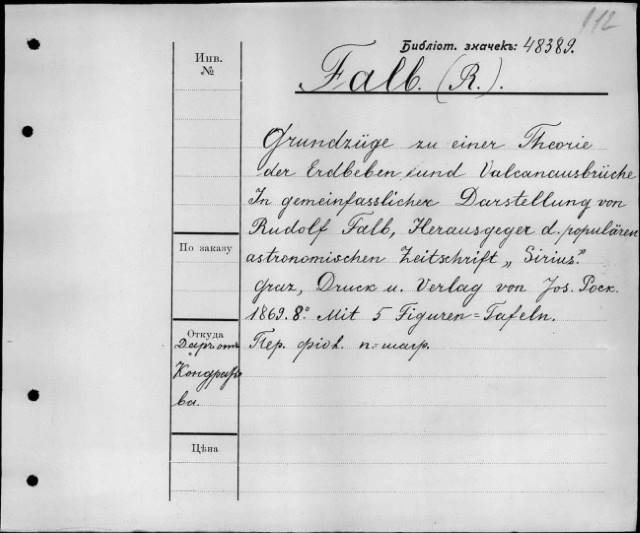 112
Библіот. значекъ: 48389.
Falb. (R.).
Инв.
№
Grundzüge zu einer Theorie
der Erdbeben und Valcanausbrüche
In gemeinfasslicher Darstellung von
Rudolf Falb, Herausgeger d. populären
astronomischen Zeitschrift „Sirius"
Graz, Druck u. Verlag von Jos. Pock.
1869. 8° Mit 5 Figuren=Tafeln.
Пер. фіол. п=шагр.
По заказу
Откуда
Даръ отъ
Кондрать
ва.
Цѣна